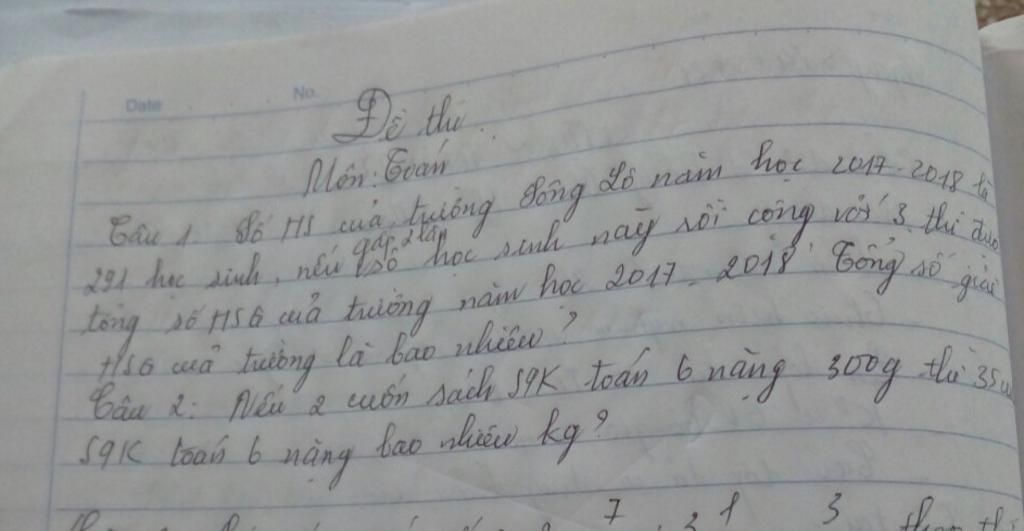 Date No.
Đề thi
Môn: Toán
Câu 1. Số HS của trường Sông Lô năm học 2017-2018 là
291 học sinh, nếu gấp 2 lần số học sinh này rồi cộng với 3 thì được
tổng số HSG của trường năm học 2017-2018. Tổng số giải
HSG của trường là bao nhiêu?
Câu 2: Nếu 2 cuốn sách SGK toán 6 nặng 300g thì 35
SGK toán 6 nặng bao nhiêu kg?
7 1 3